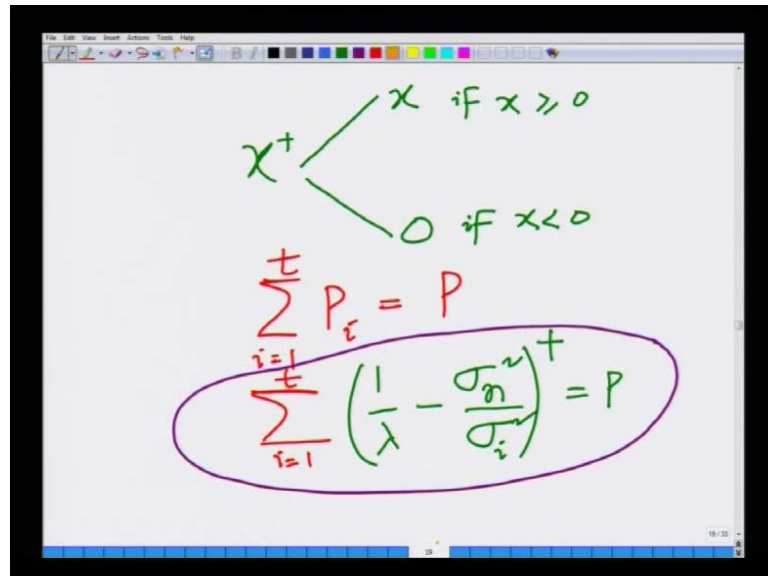 File Edit View Insert Actions Tools Help
B I
x⁺
x if x ≥ 0
0 if x < 0
∑_{i=1}^{t} P_i = P
∑_{i=1}^{t} (1/λ − σ_n²/σ_i²)⁺ = P
19/33
19